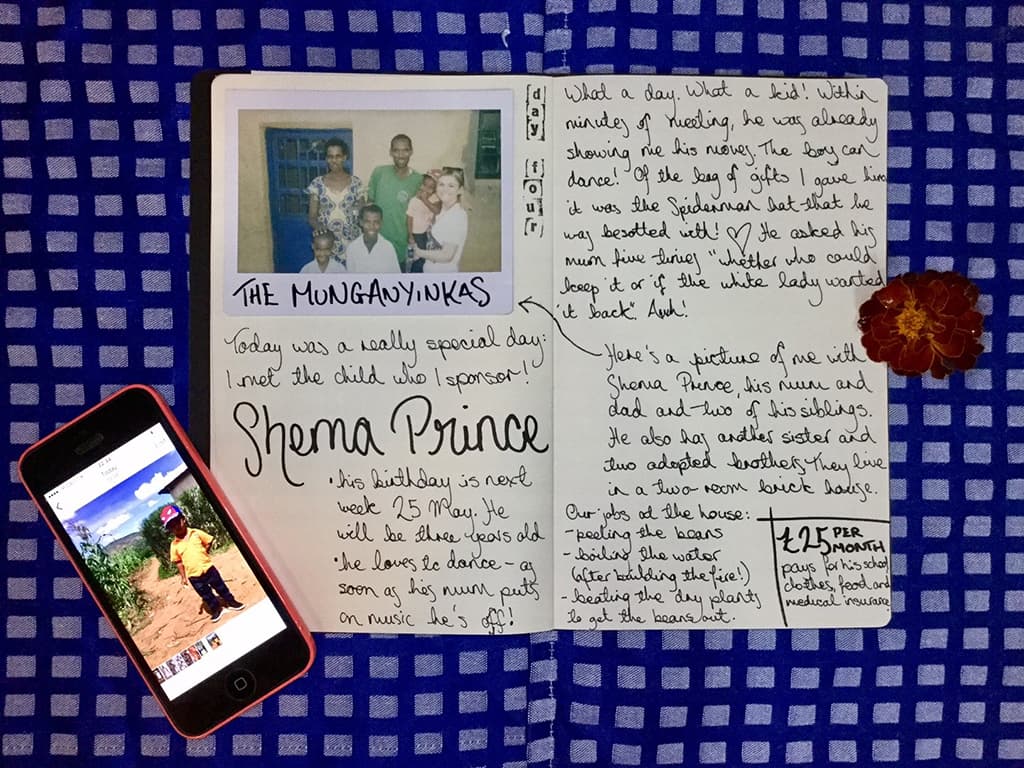 THE MUNGANYINKAS
Today was a really special day:
I met the child who I sponsor!
Shema Prince
• his birthday is next
week 25 May. He
will be three years old
• he loves to dance - as
soon as his mum puts
on music he's off!
day four
What a day. What a kid! Within
minutes of meeting, he was already
showing me his moves. The boy can
dance! Of the bag of gifts I gave him
it was the Spiderman hat that he
was besotted with! ♡ He asked his
mum five times "whether who could
keep it or if the white lady wanted
it back". Awh!
Here's a picture of me with
Shema Prince, his mum and
dad and two of his siblings.
He also has another sister and
two adopted brothers. They live
in a two-room brick house.
Our jobs at the house:
- peeling the beans
- boiling the water
(after building the fire!)
- beating the dry plants
to get the beans out.
£25 PER
MONTH
pays for his school
clothes, food and
medical insurance